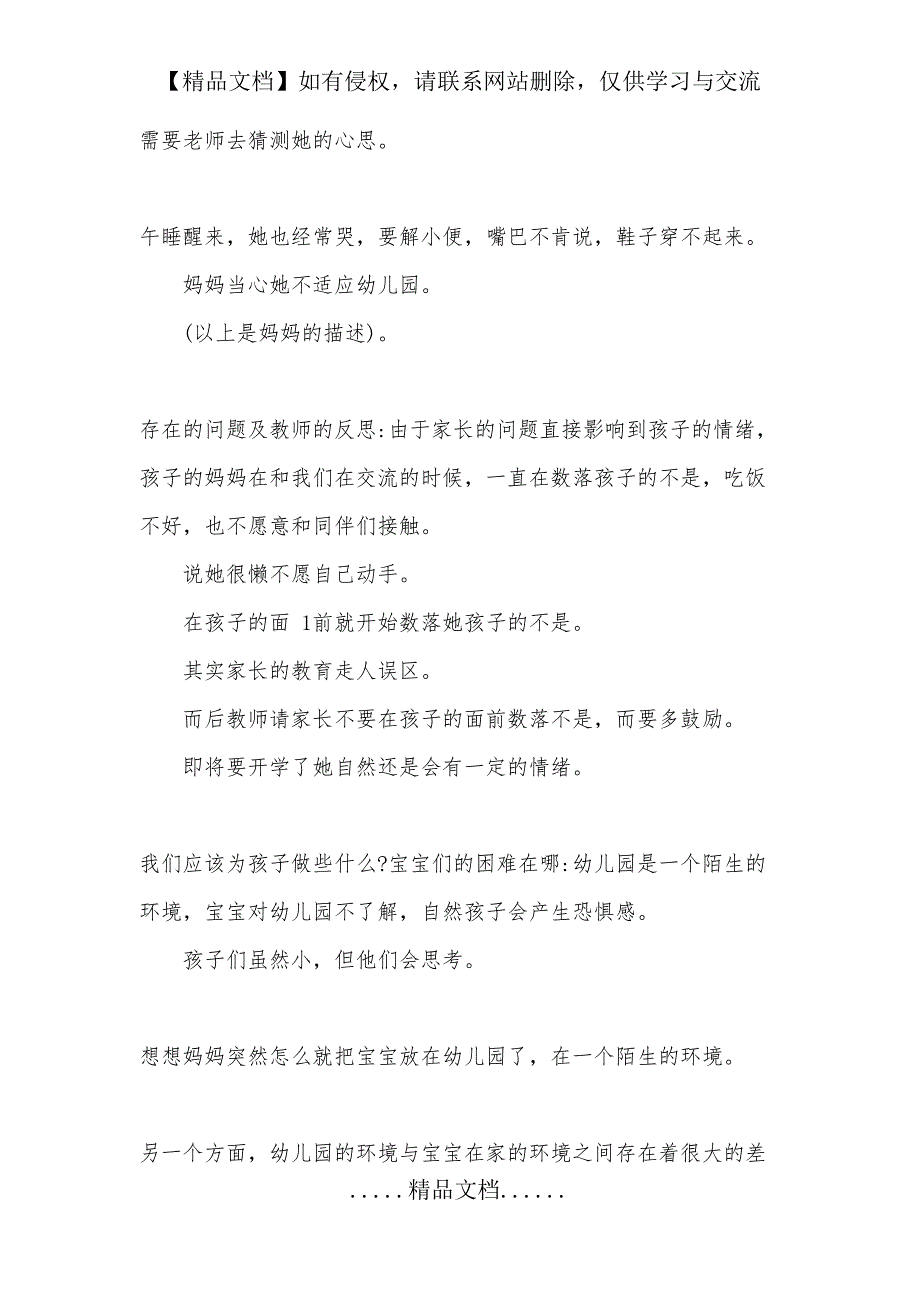 【精品文档】如有侵权，请联系网站删除，仅供学习与交流
需要老师去猜测她的心思。
午睡醒来，她也经常哭，要解小便，嘴巴不肯说，鞋子穿不起来。
妈妈当心她不适应幼儿园。
(以上是妈妈的描述)。
存在的问题及教师的反思:由于家长的问题直接影响到孩子的情绪，
孩子的妈妈在和我们在交流的时候，一直在数落孩子的不是，吃饭
不好，也不愿意和同伴们接触。
说她很懒不愿自己动手。
在孩子的面 1前就开始数落她孩子的不是。
其实家长的教育走人误区。
而后教师请家长不要在孩子的面前数落不是，而要多鼓励。
即将要开学了她自然还是会有一定的情绪。
我们应该为孩子做些什么?宝宝们的困难在哪:幼儿园是一个陌生的
环境，宝宝对幼儿园不了解，自然孩子会产生恐惧感。
孩子们虽然小，但他们会思考。
想想妈妈突然怎么就把宝宝放在幼儿园了，在一个陌生的环境。
另一个方面，幼儿园的环境与宝宝在家的环境之间存在着很大的差
.....精品文档......